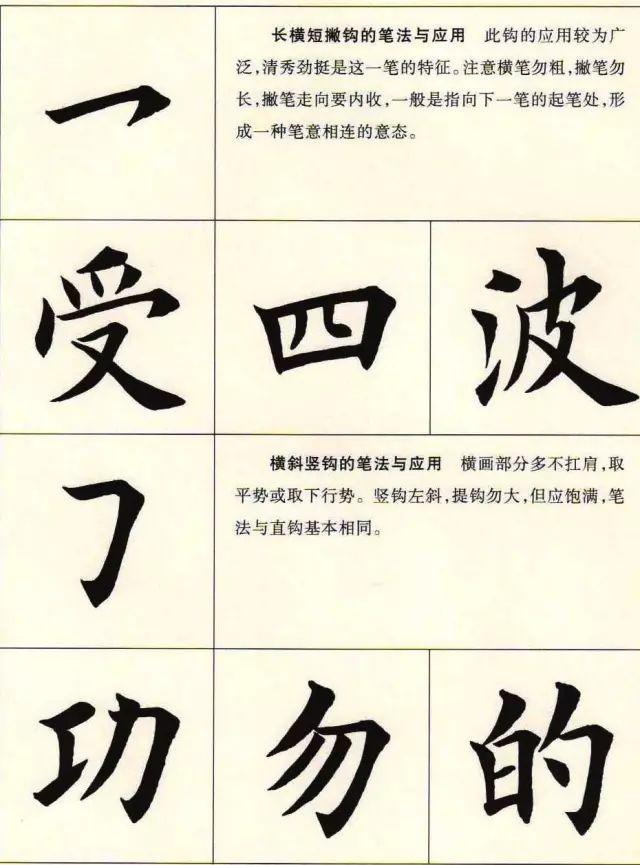 长横短撇钩的笔法与应用 此钩的应用较为广
泛,清秀劲挺是这一笔的特征。注意横笔勿粗,撇笔勿
长,撇笔走向要内收,一般是指向下一笔的起笔处,形
成一种笔意相连的意态。
受 四 波
横斜竖钩的笔法与应用 横画部分多不扛肩,取
平势或取下行势。竖钩左斜,提钩勿大,但应饱满,笔
法与直钩基本相同。
功 勿 的